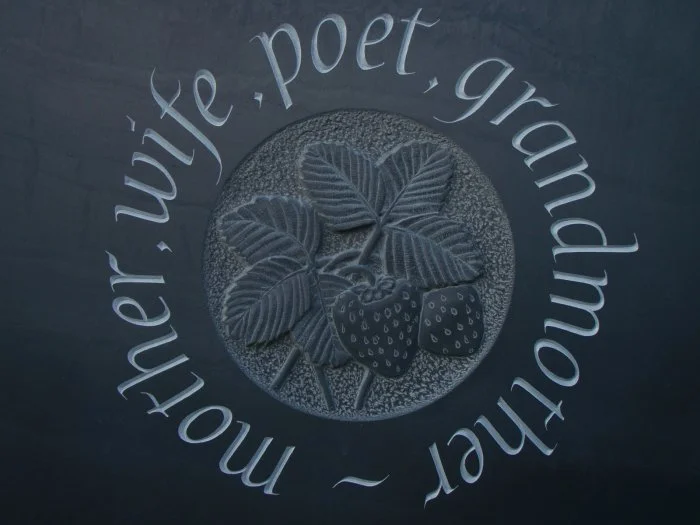 mother, wife, poet, grandmother ~